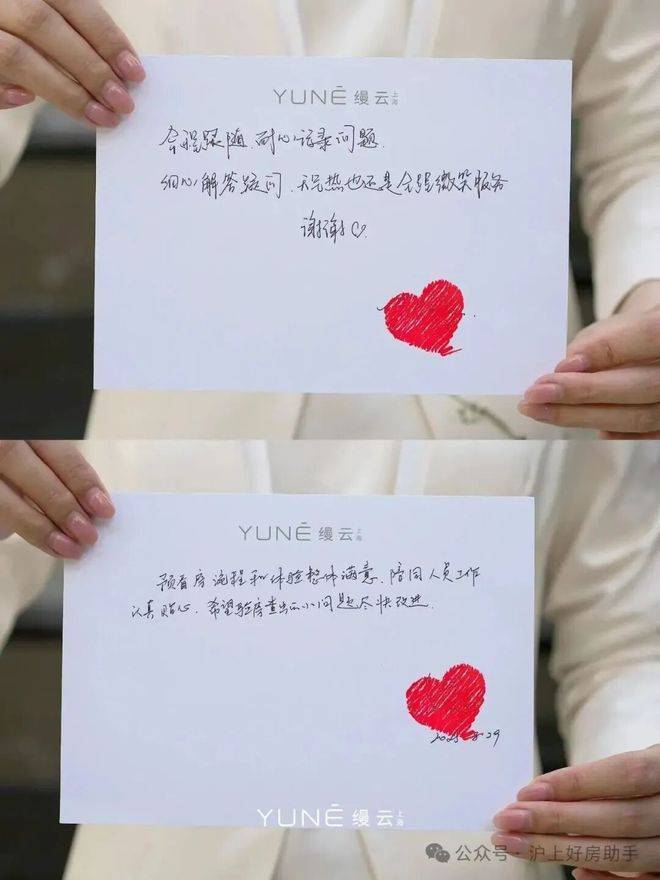 YUNÉ 缦云 上海
全程跟随,耐心记录问题.
细心解答疑问、天气热也还是全程微笑服务
谢谢♡.
YUNÉ 缦云 上海
预看房流程和体验整体满意,陪同人员工作
认真贴心.希望验房查出的小问题尽快改进.
YUNÉ 缦云 上海
公众号·沪上好房助手